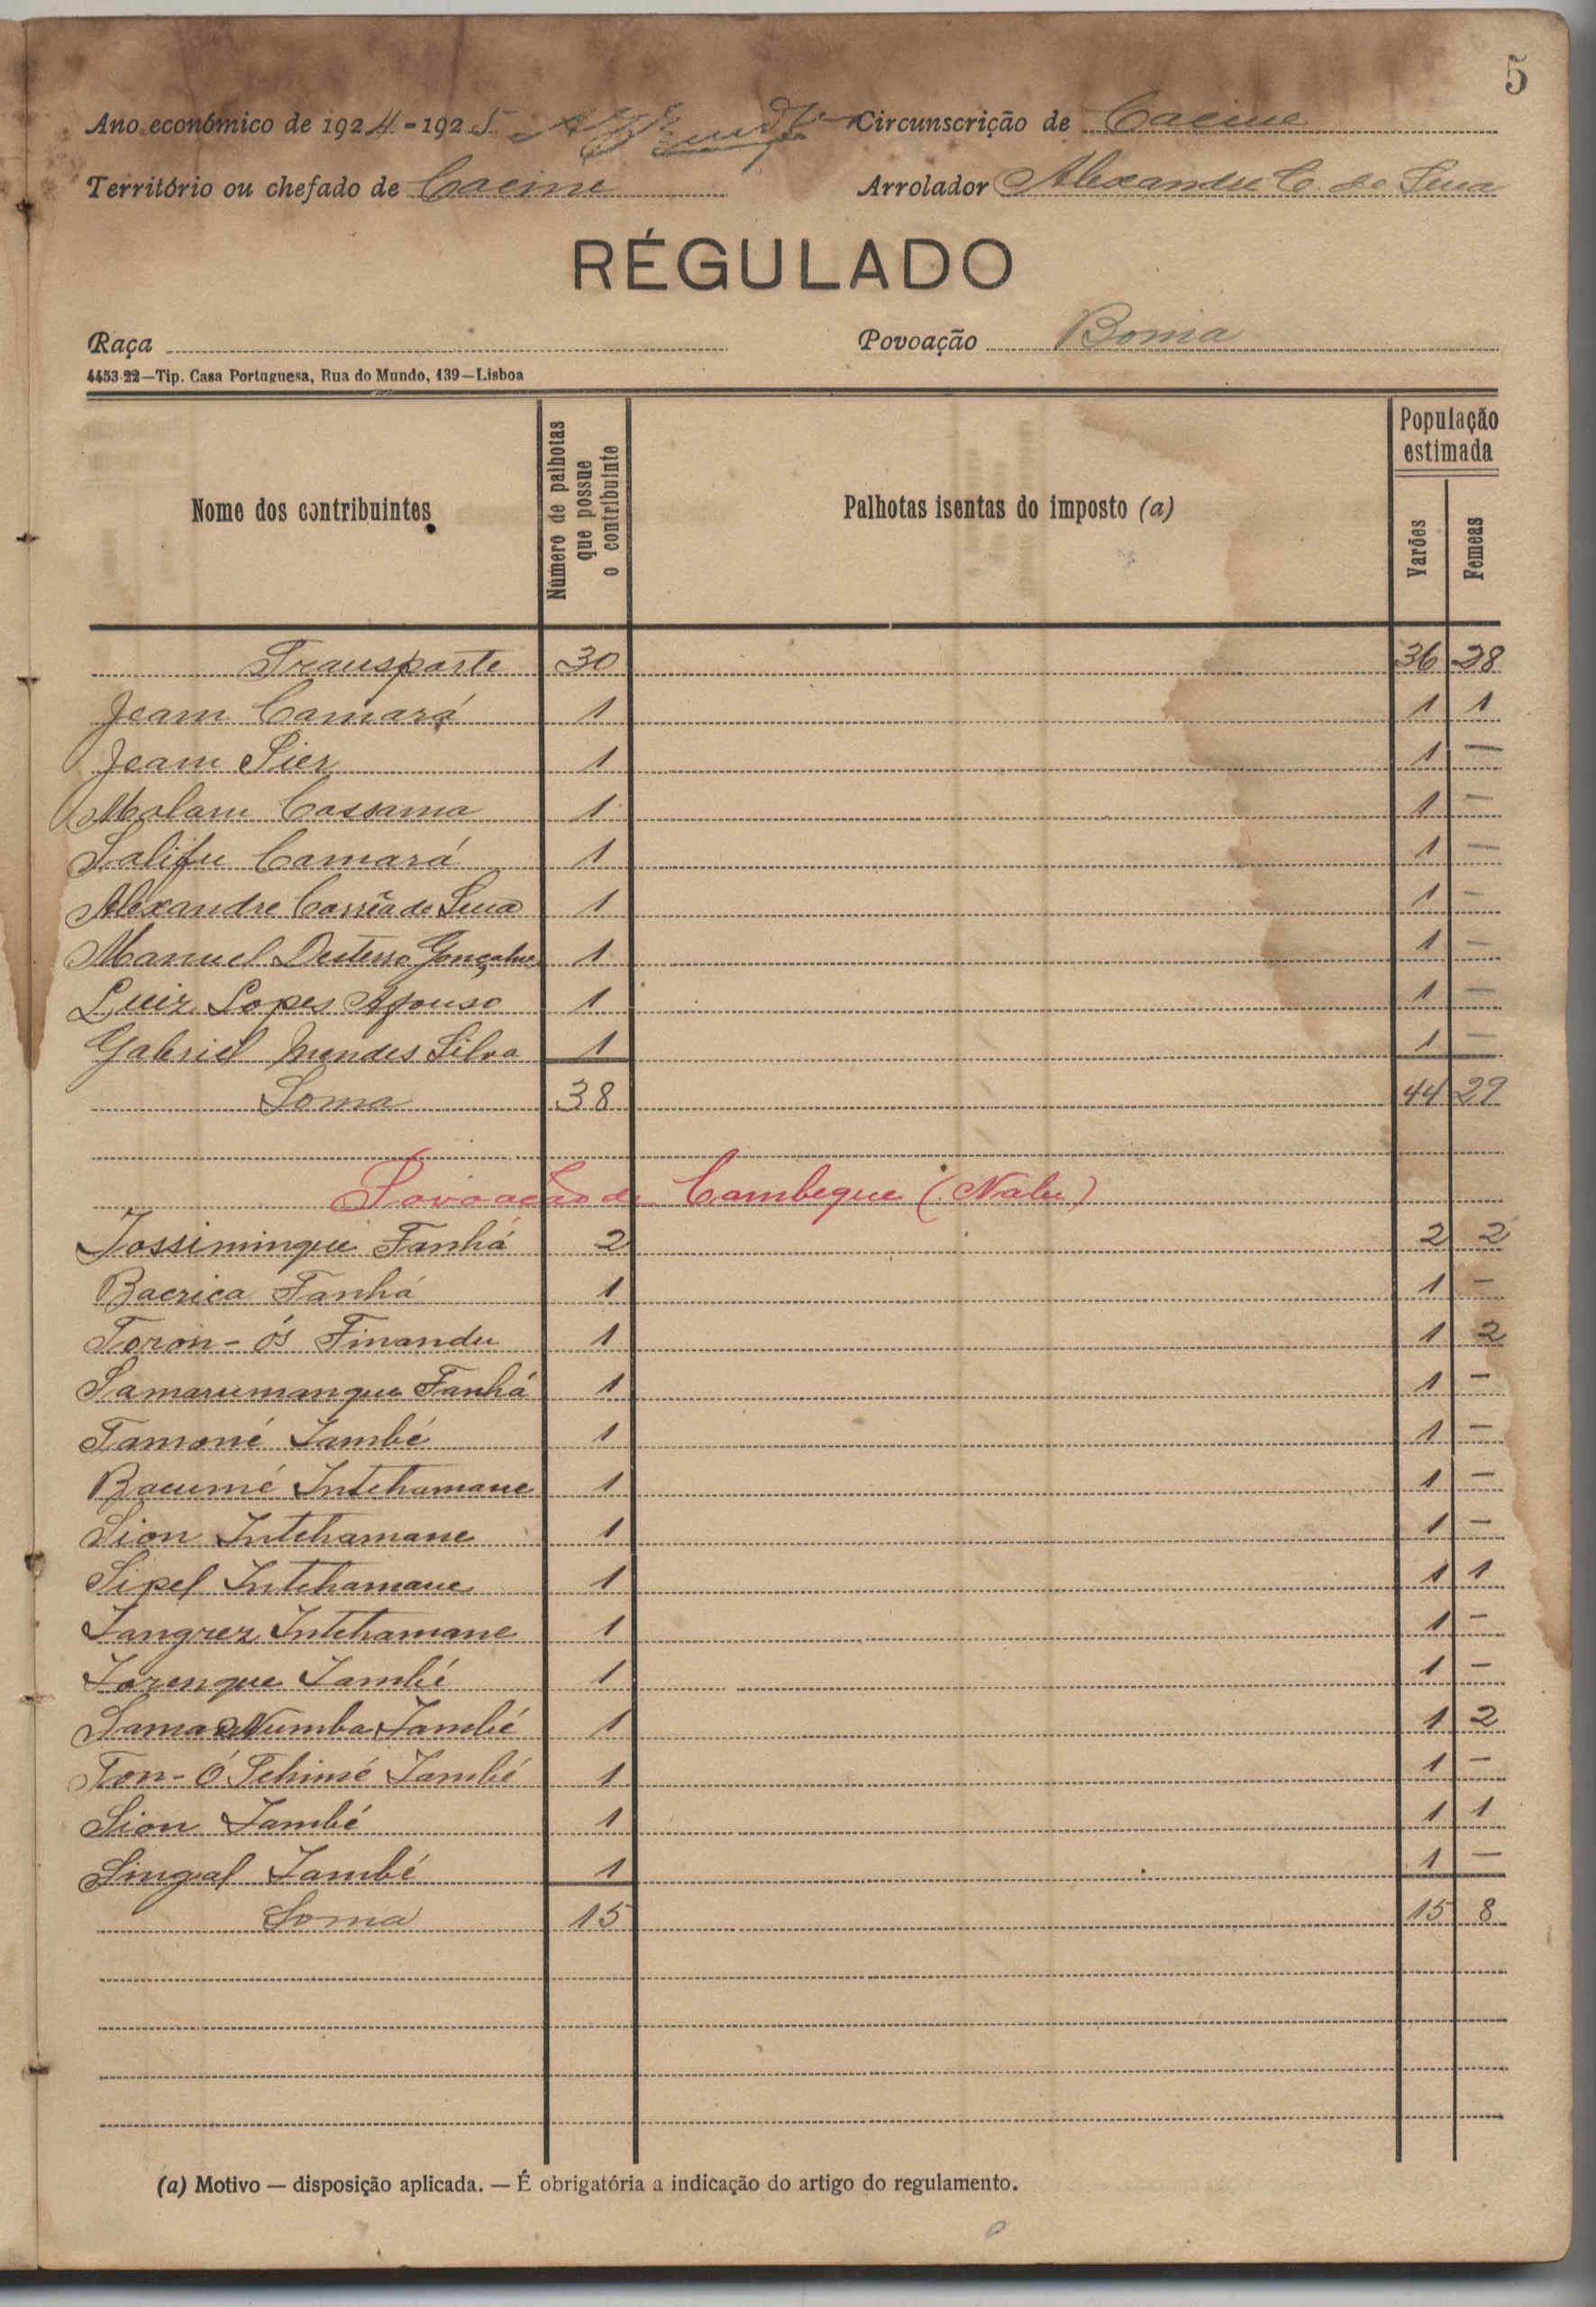 5
Ano económico de 1924-1925 Circunscrição de Cacine
Território ou chefado de Cacine Arrolador Alexandre C. de Sena
RÉGULADO
Raça Povoação Bomia
4453-22—Tip. Casa Portuguesa, Rua do Mundo, 139—Lisboa
Nome dos contribuintes Número de palhotas que possue o contribuinte Palhotas isentas do imposto (a) População estimada Varões Femeas
Transporte 30 36 28
Jeam Camará 1 1 1
Jeam Sier 1 1 —
Malam Cassama 1 1 —
Salifu Camará 1 1 —
Alexandre Corrêa de Sena 1 1 —
Manuel Desterro Gonçalves 1 1 —
Luiz Lopes Afonso 1 1 —
Gabriel Mendes Silva 1 1 —
Soma 38 44 29
Povoação de Cambeque (Nalu)
Jossiminque Fanhá 2 2 2
Bacrica Fanhá 1 1 —
Toron-ós Finandu 1 1 2
Samarumanque Fanhá 1 1 —
Tamoné Jambé 1 1 —
Bacumé Intchamane 1 1 —
Sion Intchamane 1 1 —
Sipel Intchamane 1 1 1
Jangrez Intchamane 1 1 —
Jorenque Jambé 1 1 —
Sama Numba Jambé 1 1 2
Ton-ó Tchimé Jambé 1 1 —
Sion Jambé 1 1 1
Singal Jambé 1 1 —
Soma 15 15 8
(a) Motivo — disposição aplicada. — É obrigatória a indicação do artigo do regulamento.